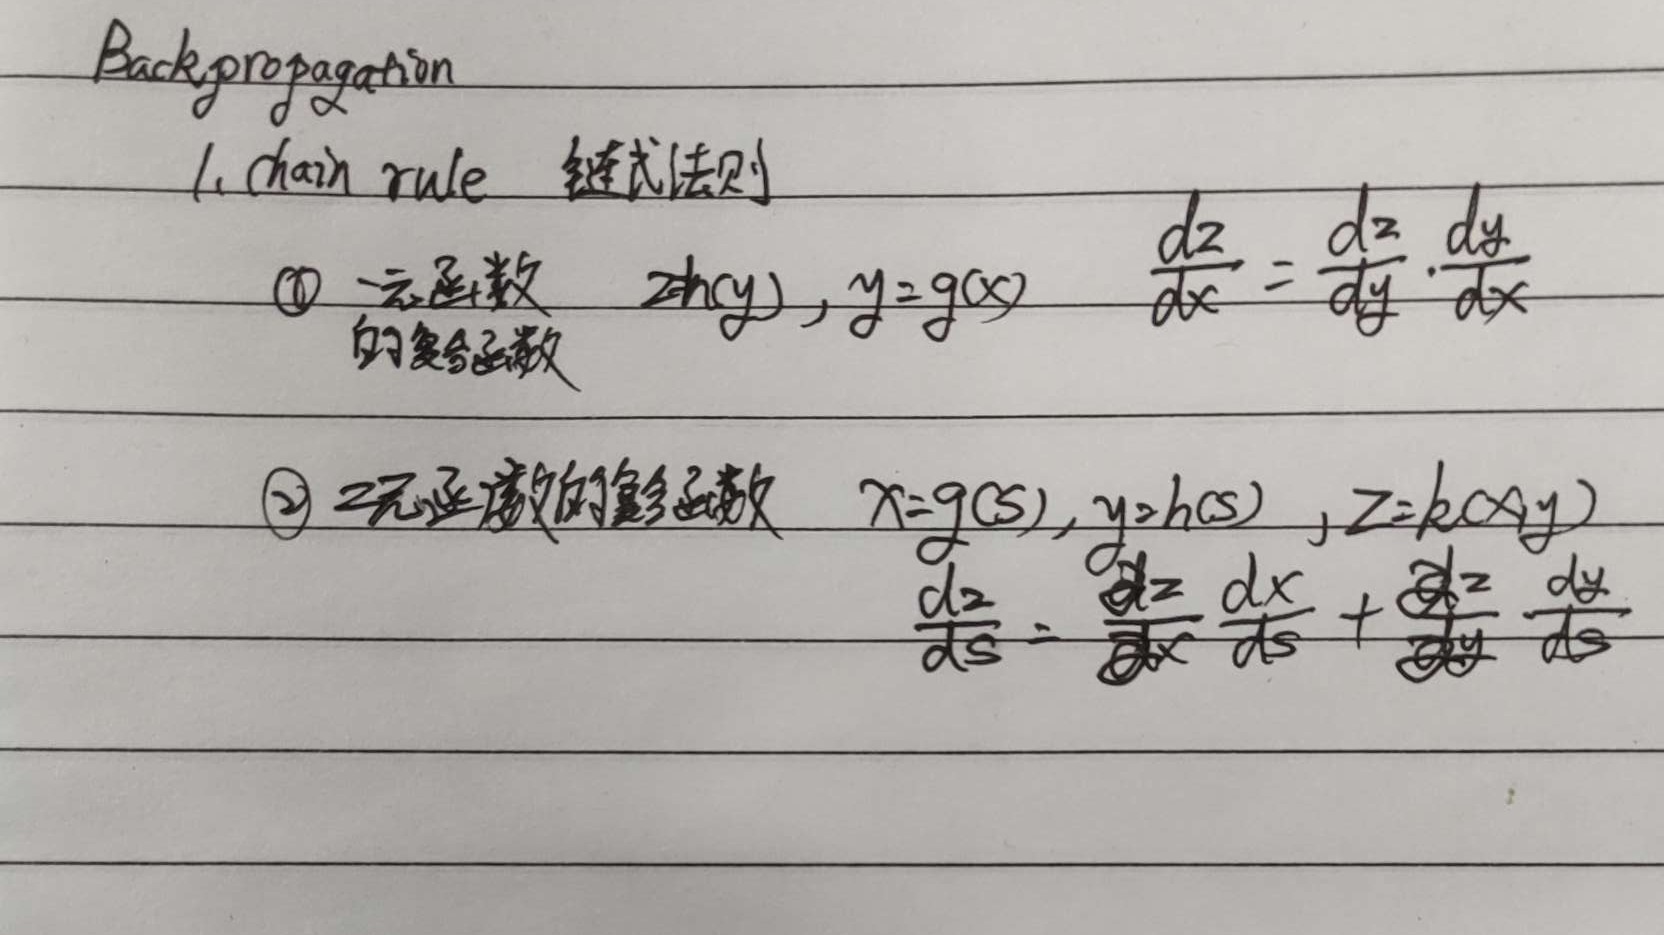 Backpropagation
1. Chain rule 链式法则
① 一元函数 z=h(y), y=g(x) dz/dx = dz/dy · dy/dx
的复合函数
② 2元函数的复合函数 x=g(s), y=h(s), z=k(x,y)
dz/ds = ∂z/∂x dx/ds + ∂z/∂y dy/ds